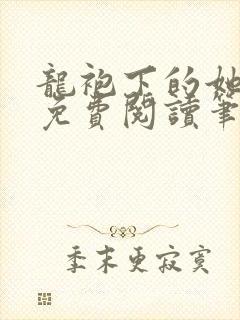 龍袍下的她
免費閱讀筆
季末更寂寞